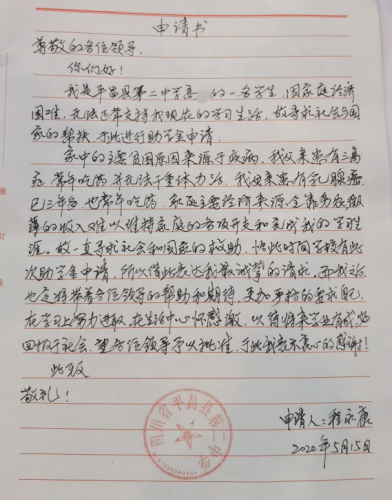 申请书
尊敬的各位领导:
你们好!
我是平昌县第二中学高一的一名学生,因家庭经济
困难,无法正常支持我现在的学习生活,故寻求社会与国
家的帮扶,于此进行助学金申请。
家中的主要贫困原因来源于疾病,我父亲患有三高
症,常年吃药,并无法干重体力活,我母亲患有乳腺癌
已三年多,也常年吃药,家庭主要经济来源全靠务农微
薄的收入难以维持家庭的各项开支和完成我的学习生
涯,故一直寻求社会和国家的救助,恰此时间学校有此
次助学金申请,所以借此表达我最诚挚的请求,而我

也定将带着各位领导的帮助和期待,更加严格的要求自己,
在学习上努力进取,在生活中心怀感激,以待将来学业有成,
回报于社会,望各位领导予以批准,于此我表示衷心的感谢!
此致
敬礼!
申请人:程永康
2022年5月15日
四川省平昌县第二中学